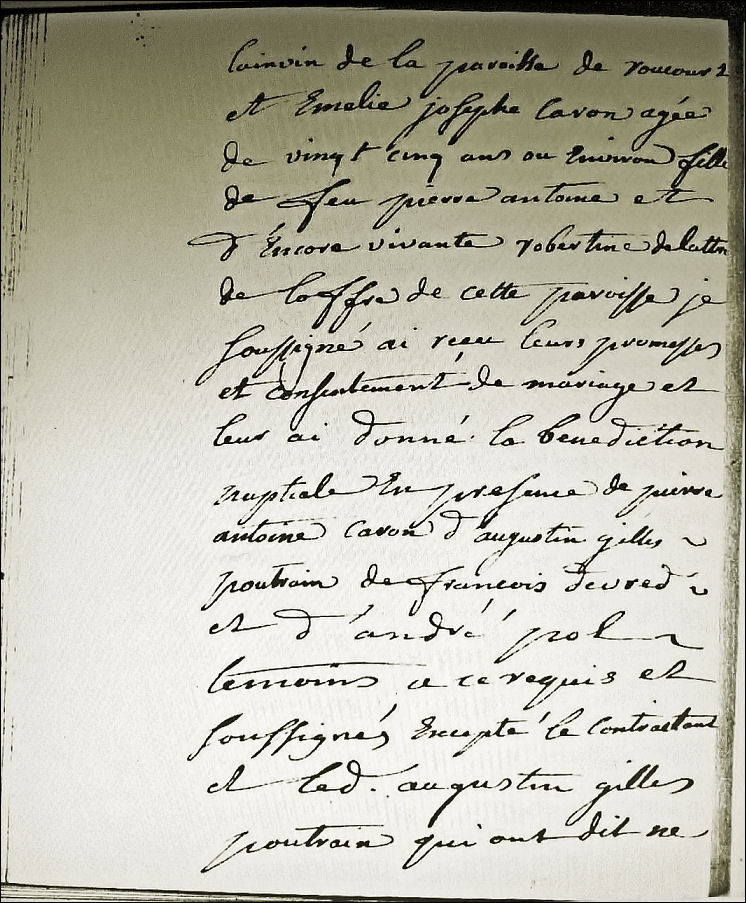 de la paroisse de roucourt
et Emelie josephe Caron agée
de vingt cinq ans ou Environ fille
de feu pierre antoine et
d'Encore vivante robertine delattre
de loffre de cette paroisse je
soussigné ai recu leurs promesses
et Consentement de mariage et
leur ai donné la benediction
nuptiale En presence de pierre
antoine caron d'augustin gilles ~
poutrain de francois devred ~
et d'andré pol ~
temoins a ce requis et
soussignés Excepté le Contractant
et led. augustin gilles
poutrain qui ont dit ne